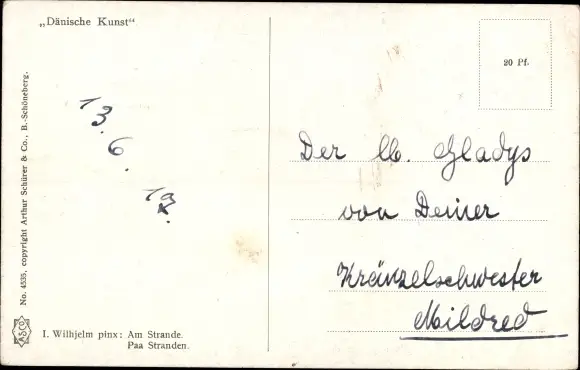 „Dänische Kunst“
20 Pf.
13.
6.
Der lb. Gladys
von Deiner
Kränzelschwester
Mildred
No. 4535, copyright Arthur Schürer & Co., B.-Schöneberg.
I. Wilhjelm pinx: Am Strande.
Paa Stranden.